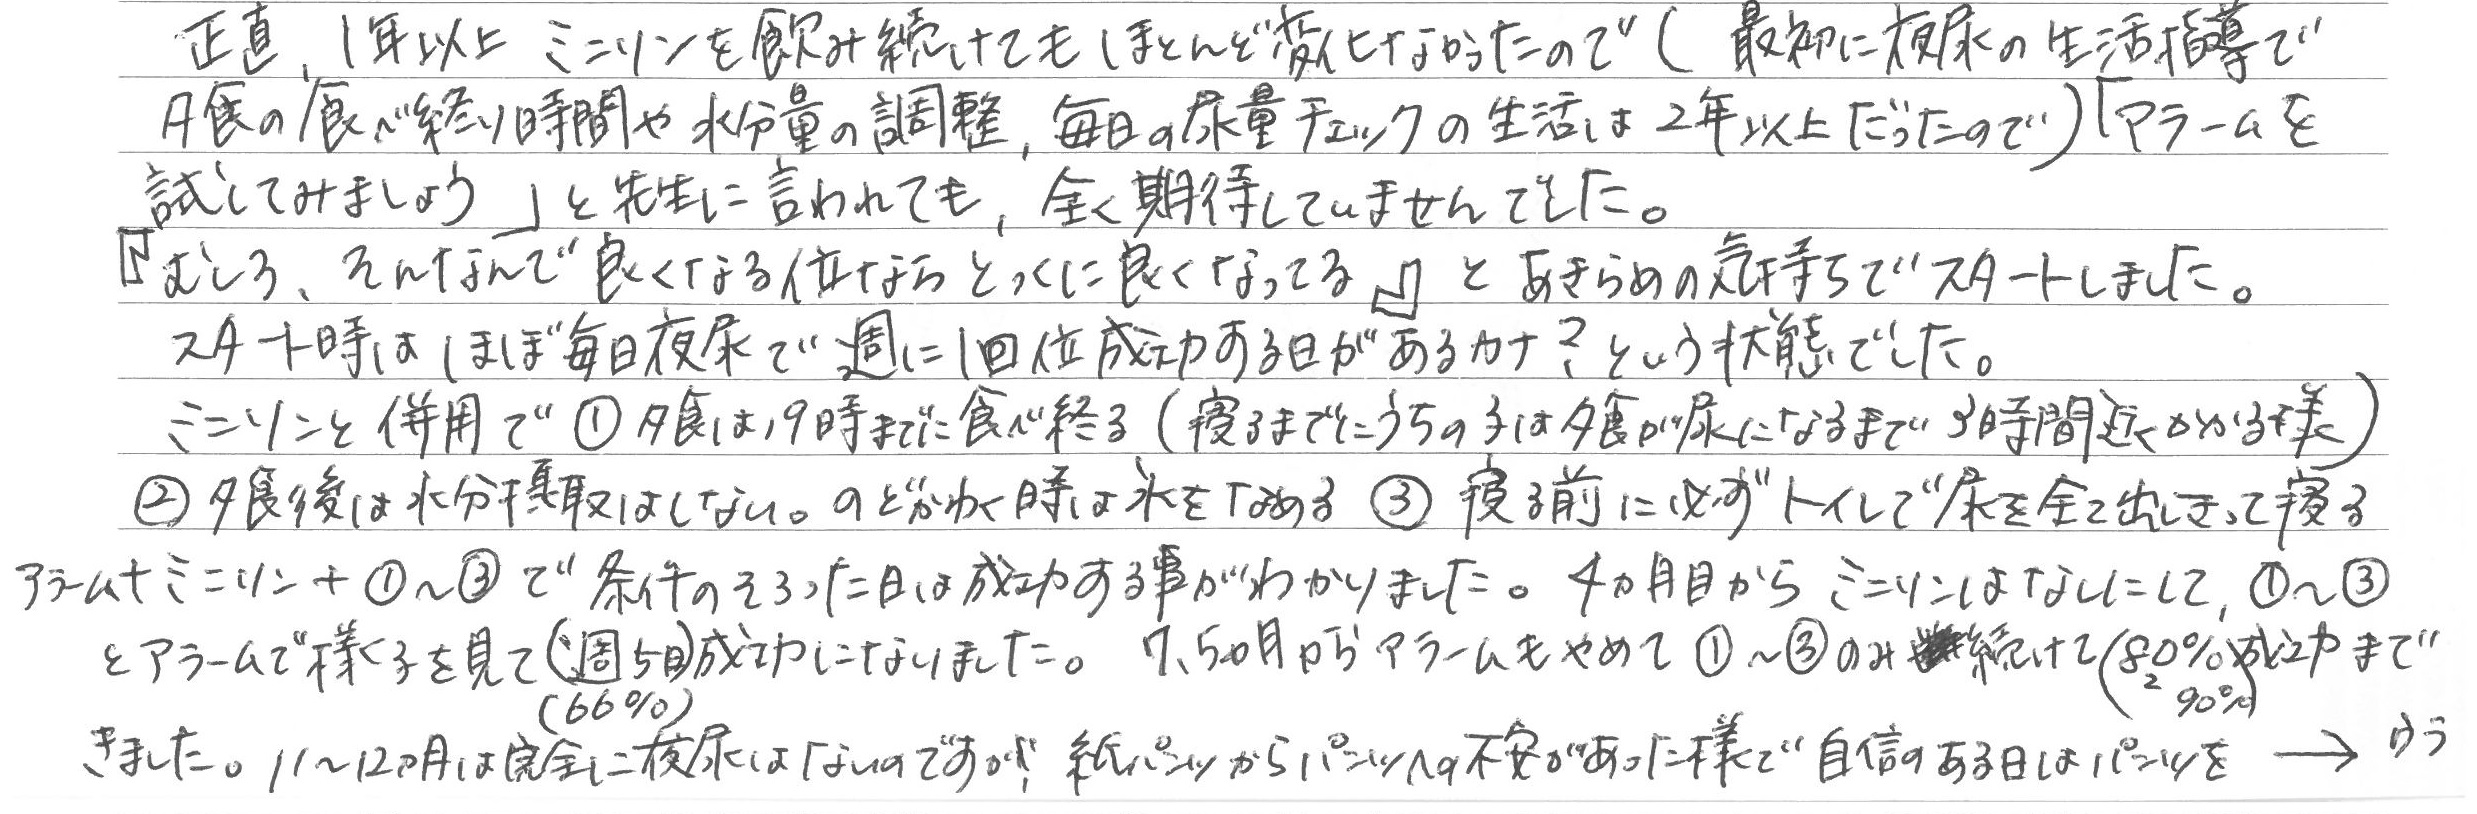 正直、1年以上 ミニリンを飲み続けてもほとんど変化なかったので(最初に夜尿の生活指導で
夕食の食べ終り時間や水分量の調整、毎日の尿量チェックの生活は2年以上だったので)「アラームを
試してみましょう」と先生に言われても、全く期待していませんでした。
『むしろ、そんなんで良くなる位ならとっくに良くなってる』とあきらめの気持ちでスタートしました。
スタート時はほぼ毎日夜尿で週に1回位成功する日があるカナ?という状態でした。
ミニリンと併用で ①夕食は19時までに食べ終る(寝るまでにうちの子は夕食が尿になるまで3時間近くかかる様)
②夕食後は水分摂取はしない。のどかわく時は氷をなめる ③寝る前に必ずトイレで尿を全て出しきって寝る
アラーム+ミニリン+①~③で条件のそろった日は成功する事がわかりました。4ヵ月目からミニリンはなしにして、①~③
とアラームで様子を見て(週5日)成功になりました。7.5ヵ月からアラームもやめて①~③のみ続けて(80%~90%)成功まで
(66%)
きました。11~12ヵ月は完全に夜尿はないのですが、紙パンツからパンツへの不安があった様で自信のある日はパンツを → ウラ